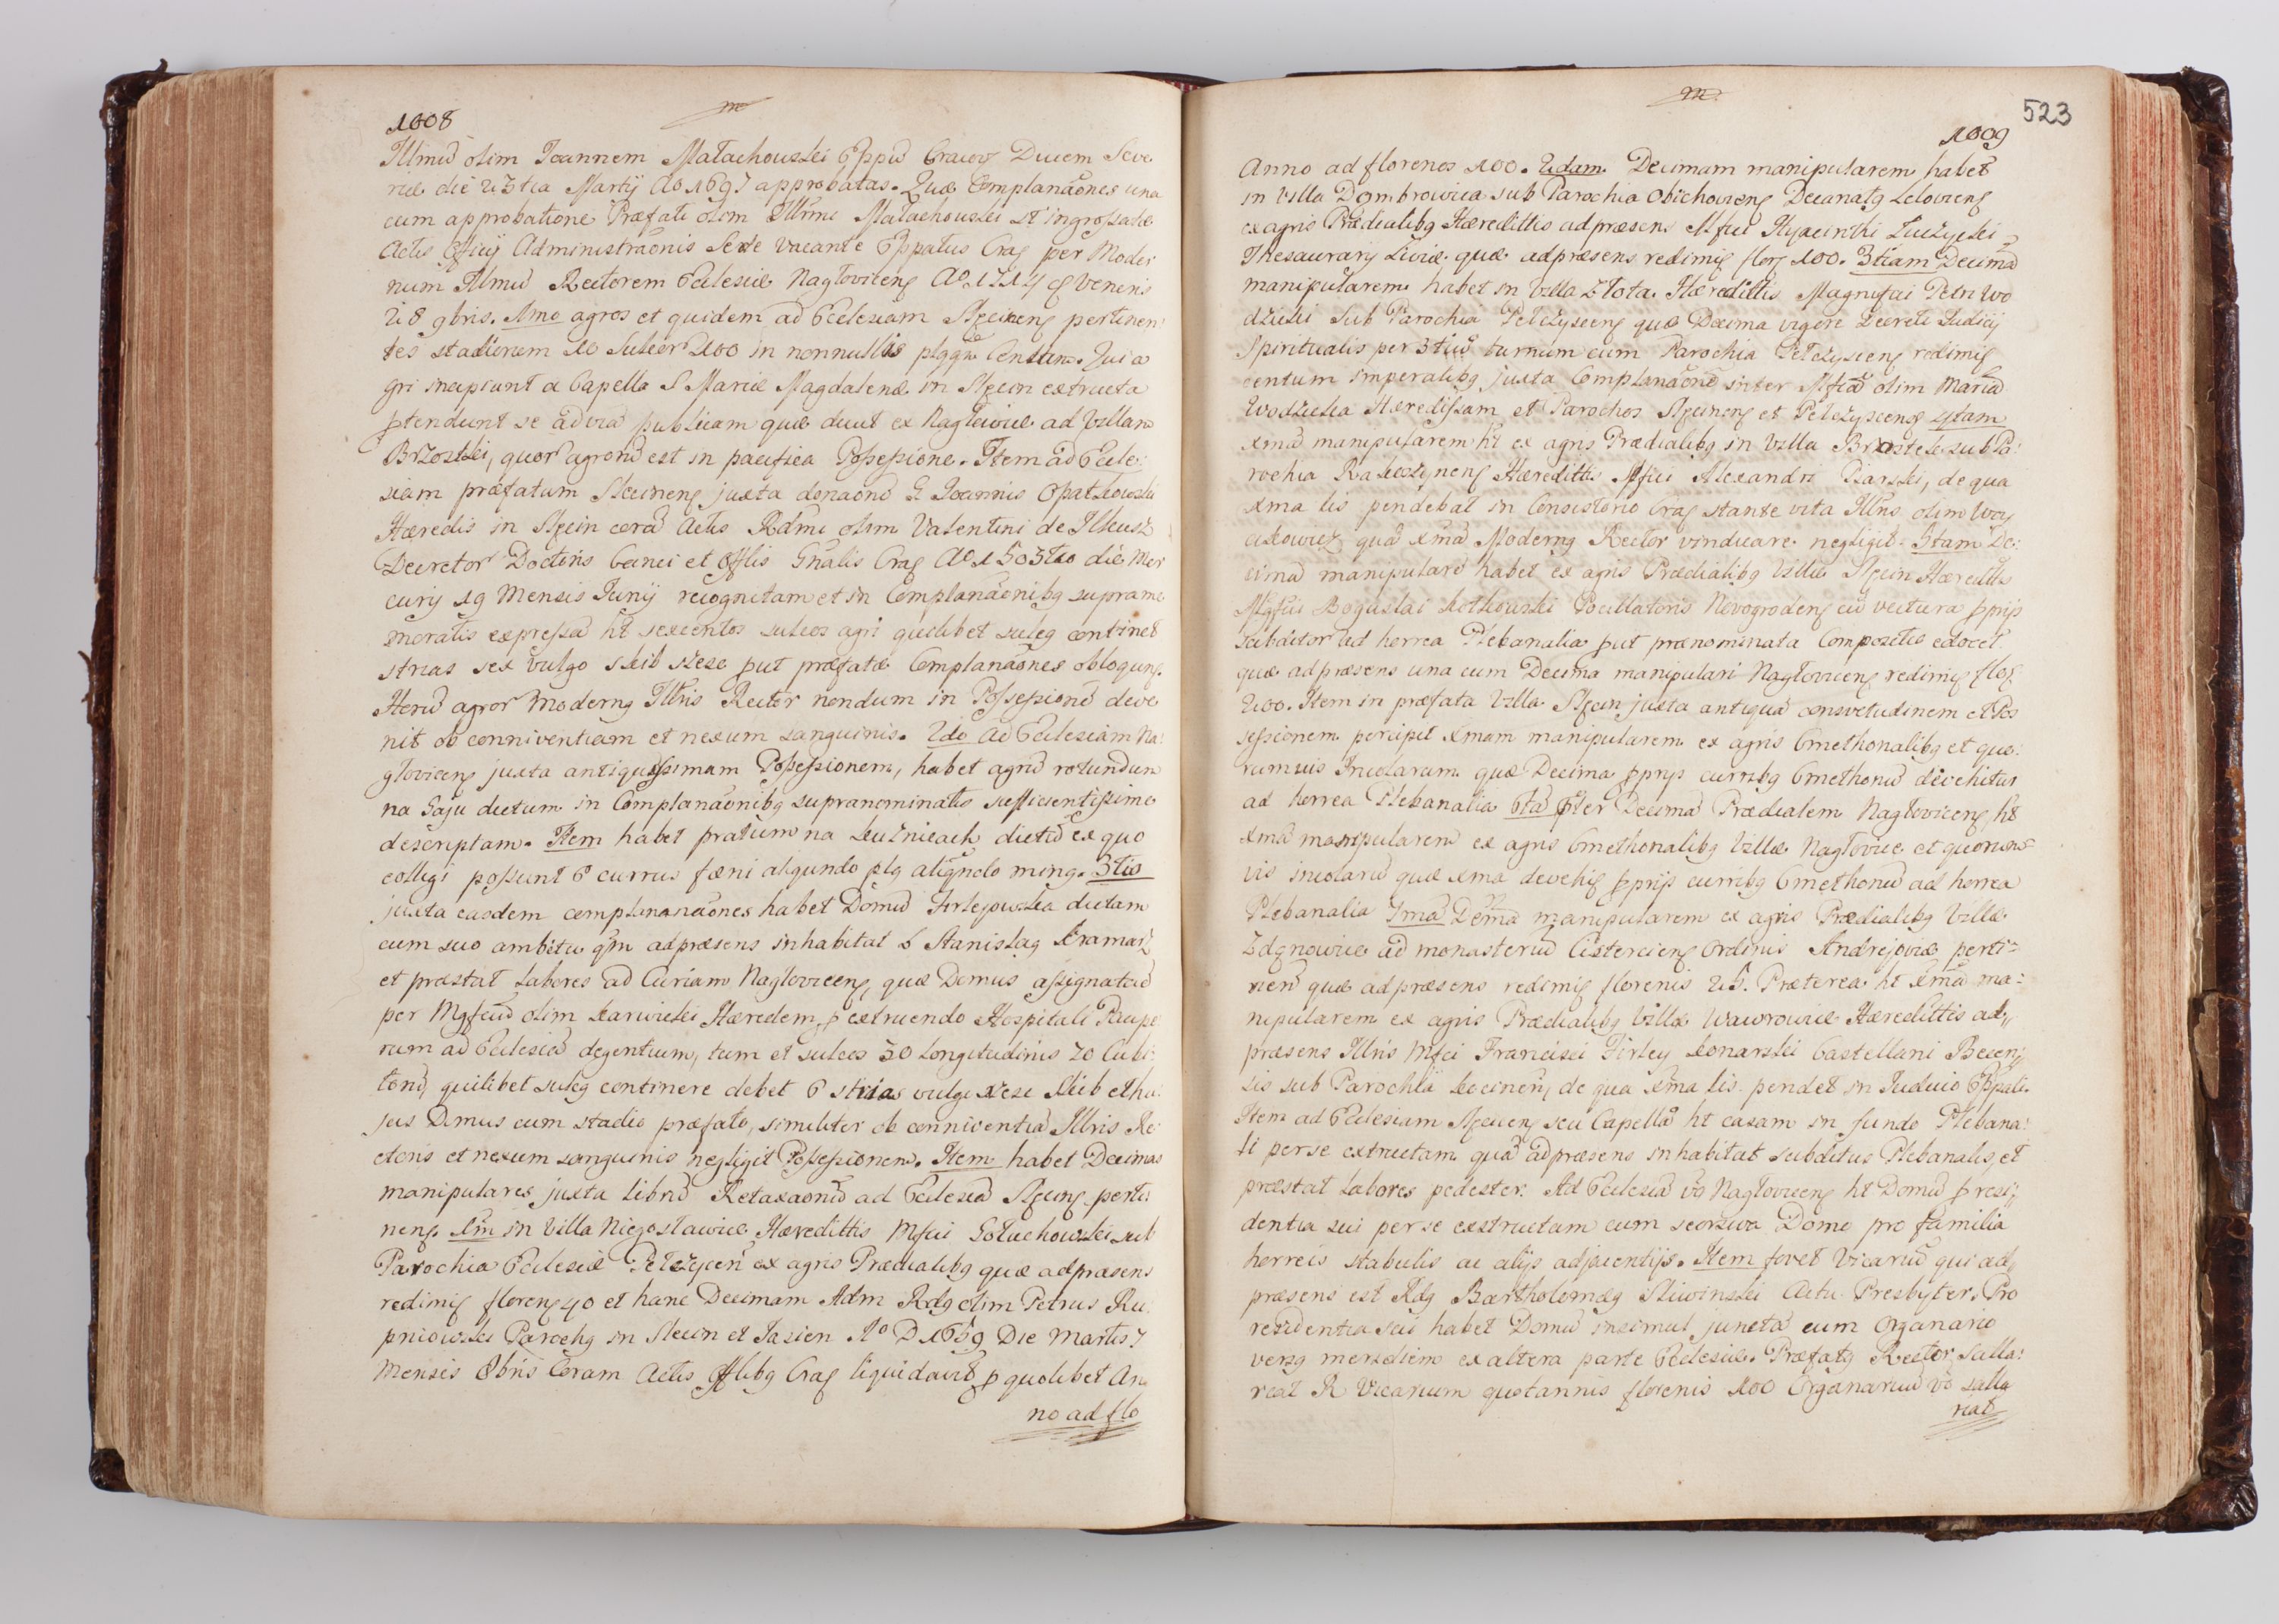 1008
m
Illmũ olim Joannem Małachowski Eppũ Cracov Ducem Seve
riæ die 23tia Martij Ao 1697 approbatas. Quæ Complanaões una
cum approbatione Præfati olim Illrmi Małachowski st ingrossatæ
Actis Officij Administraonis Sede vacante Eppatus Crac per Moder
num Illmũ Rectorem Ecclesiæ Nagłovicens Ao 1714
28 9bris. Imo agros et quidem ad Ecclesiam pertinen
tes stadiorum 10 Sulcor 100 in nonnullis Qui a
gri incipiunt a Capella S Mariæ Magdalenæ in extructa
ptendunt se ad viã publicam quæ ducit ex Nagłowice ad Villam
Brzostki, quor agrorũ est in pacifica Possessione. Item ad Eccle
siam præfatam juxta donaonẽ G Joannis Opatkowski
Hæredis in corã Actis Rdmi olim Valentini de Ilkusz
Decretor Doctoris Canci et Offlis Gnalis Crac Ao 1503tio die Mer
curij 19 Mensis Junij recognitam et in Complanaonibq suprame
moratis expressã ht sexcentos sulcos agri quilibet sulcq continet
strias sex vulgo skib szesc put præfatæ Complanaones obloqunt
Horũ agror modernq Illris Rector nondum in Possessionẽ deve
nit ob conniventiam et nexum sanguinis. 2do Ad Ecclesiam Na
glovicens juxta antiquissimam Possessionem, habet agrũ rotundum
na Gaju dictum in Complanaonibq supranominatis sufficientissime
descriptam. Item habet pratum na Łuźnicach dictũ ex quo
colligi possunt 6 currus fæni aliqundo plq aliqndo minq. 3tio
juxta easdem complananaones habet Domũ Firlejowska dictam
cum suo ambitu qm adpræsens inhabitat Stanislaq Kramarz
et præstat Labores ad Curiam Naglovicens, quæ Domus assignata
per Mgfcũ olim Karwicki Hæredem, p extruendo Hospitali Paupe
rum ad Ecclesiã degentium, tum et sulcos 30 Longitudinis 70 Cubi
torũ, quilibet sulcq continere debet 6 strias vulgi szesc skib et hu
jus Domus cum stadio præfato, similiter ob conniventiã Illris Re
ctoris et nexum sanguinis negligit Possessionem. Item habet Decimas
manipulares juxta Librũ Retaxaonũ ad Ecclesiã perti
nens. Im in Villa Niegosławice Hæredittis Mfici Gołuchowski sub
Parochia Ecclesiæ ex agris Prædialibq quæ adpræsens
redimit florens 40 et hanc Decimam Adm Rdq olim Petrus Ru
pniowski Parochq in et Jasien Ao D 1639 Die Martis 7
Mensis 8bris Coram Actis Offlibq Crac liquidavit p quolibet An
no ad flo
m
523
1009
Anno ad florenos 100. 2dam. Decimam manipularem habet
in Villa Dombrowica sub Parochia Decanatq Leloviens
ex agris Prædialibq Hæredittis adpræsens Mfici Hyacinthi
Thesaurarij Liviæ quæ adpræsens redimit flors 100. 3tiam Decimã
manipularem habet in Villa Złota. Hæredittis Magnifici Petri Wo
dzicki sub Parochia quæ Decima vigore Decreti Judicij
Spiritualis per 3tiũ turnum cum Parochia redimit
centum imperalibq juxta Complanaonẽ inter Mfcã olim Mariã
Wodzicka Hæredissam et Parochos et 4tam
xmã manipularem ht ex agris Prædialibq in Villa sub Pa
rochia Hæredittis Mfici Alexandri Piarski, de qua
xma lis pendebat in Consistorio Crac stante vita Illris olim Woy
ciakowicz quã xmã Modernq Rector vindicare negligit. 5tam De:
cimã manipularẽ habet ex agris Prædialibq Villæ Hæredittis
Mgfici Boguslai Pocillatoris Novogrodens cũ vectura pprijs
subditor ad horrea Plebanalia put prænominata Compositio edocet.
quæ adpræsens una cum Decima manipulari Nagłovicens redimit flor
200. Item in præfata Villa juxta antiquã consvetudinem et Pos
sessionem percipit xmam manipularem ex agris Cmethonalibq et quo
rumvis Incolarum. quæ Decima pprijs curribq Cmethonũ devehitur
ad horrea Plebanalia 6tã pter Decimã Prædialem Naglovicens ht
xmã manipularem ex agris Cmethonalibq Villæ Nagłowice et quorum
vis incolarũ quæ xma devehit pprijs curribq Cmethonũ ad horrea
Plebanalia 7mã Demã manipularem ex agris Prædialibq Villæ
Zdanowice ad monasteriũ Cisterciens Ordinis Andrejoviæ perti
nen quæ adpræsens redimit florenis 25. Præterea ht xmã ma:
nipularem ex agris Prædialibq Villæ Wawrowice Hæredittis ad
præsens Illris Mfci Francisci Firley Konarski Castellani Biecen
sis sub Parochia de qua xma lis pendet in Judicio Eppali.
Item ad Ecclesiam seu Capellã ht casam in fundo Plebana
li per se extructam quã adpræsens inhabitat subditus Plebanalis, et
præstat Labores pedester. Ad Ecclesiã vo Naglovicens ht Domũ p resi
dentia sui per se exstructam cum seorsiva Domo pro familia
horreis stabulis ac alijs adjacentijs. Item fovet Vicariũ qui ad
præsens est Rdq Bartholomæq Sliwinski Actu Presbyter. Pro
residentia sui habet Domũ insimul junctã cum Organario
versq meridiem ex altera parte Ecclesiæ. Præfatq Rector Salla:
reat R Vicarium quotannis florenis 100 Organariũ vo salla
riat